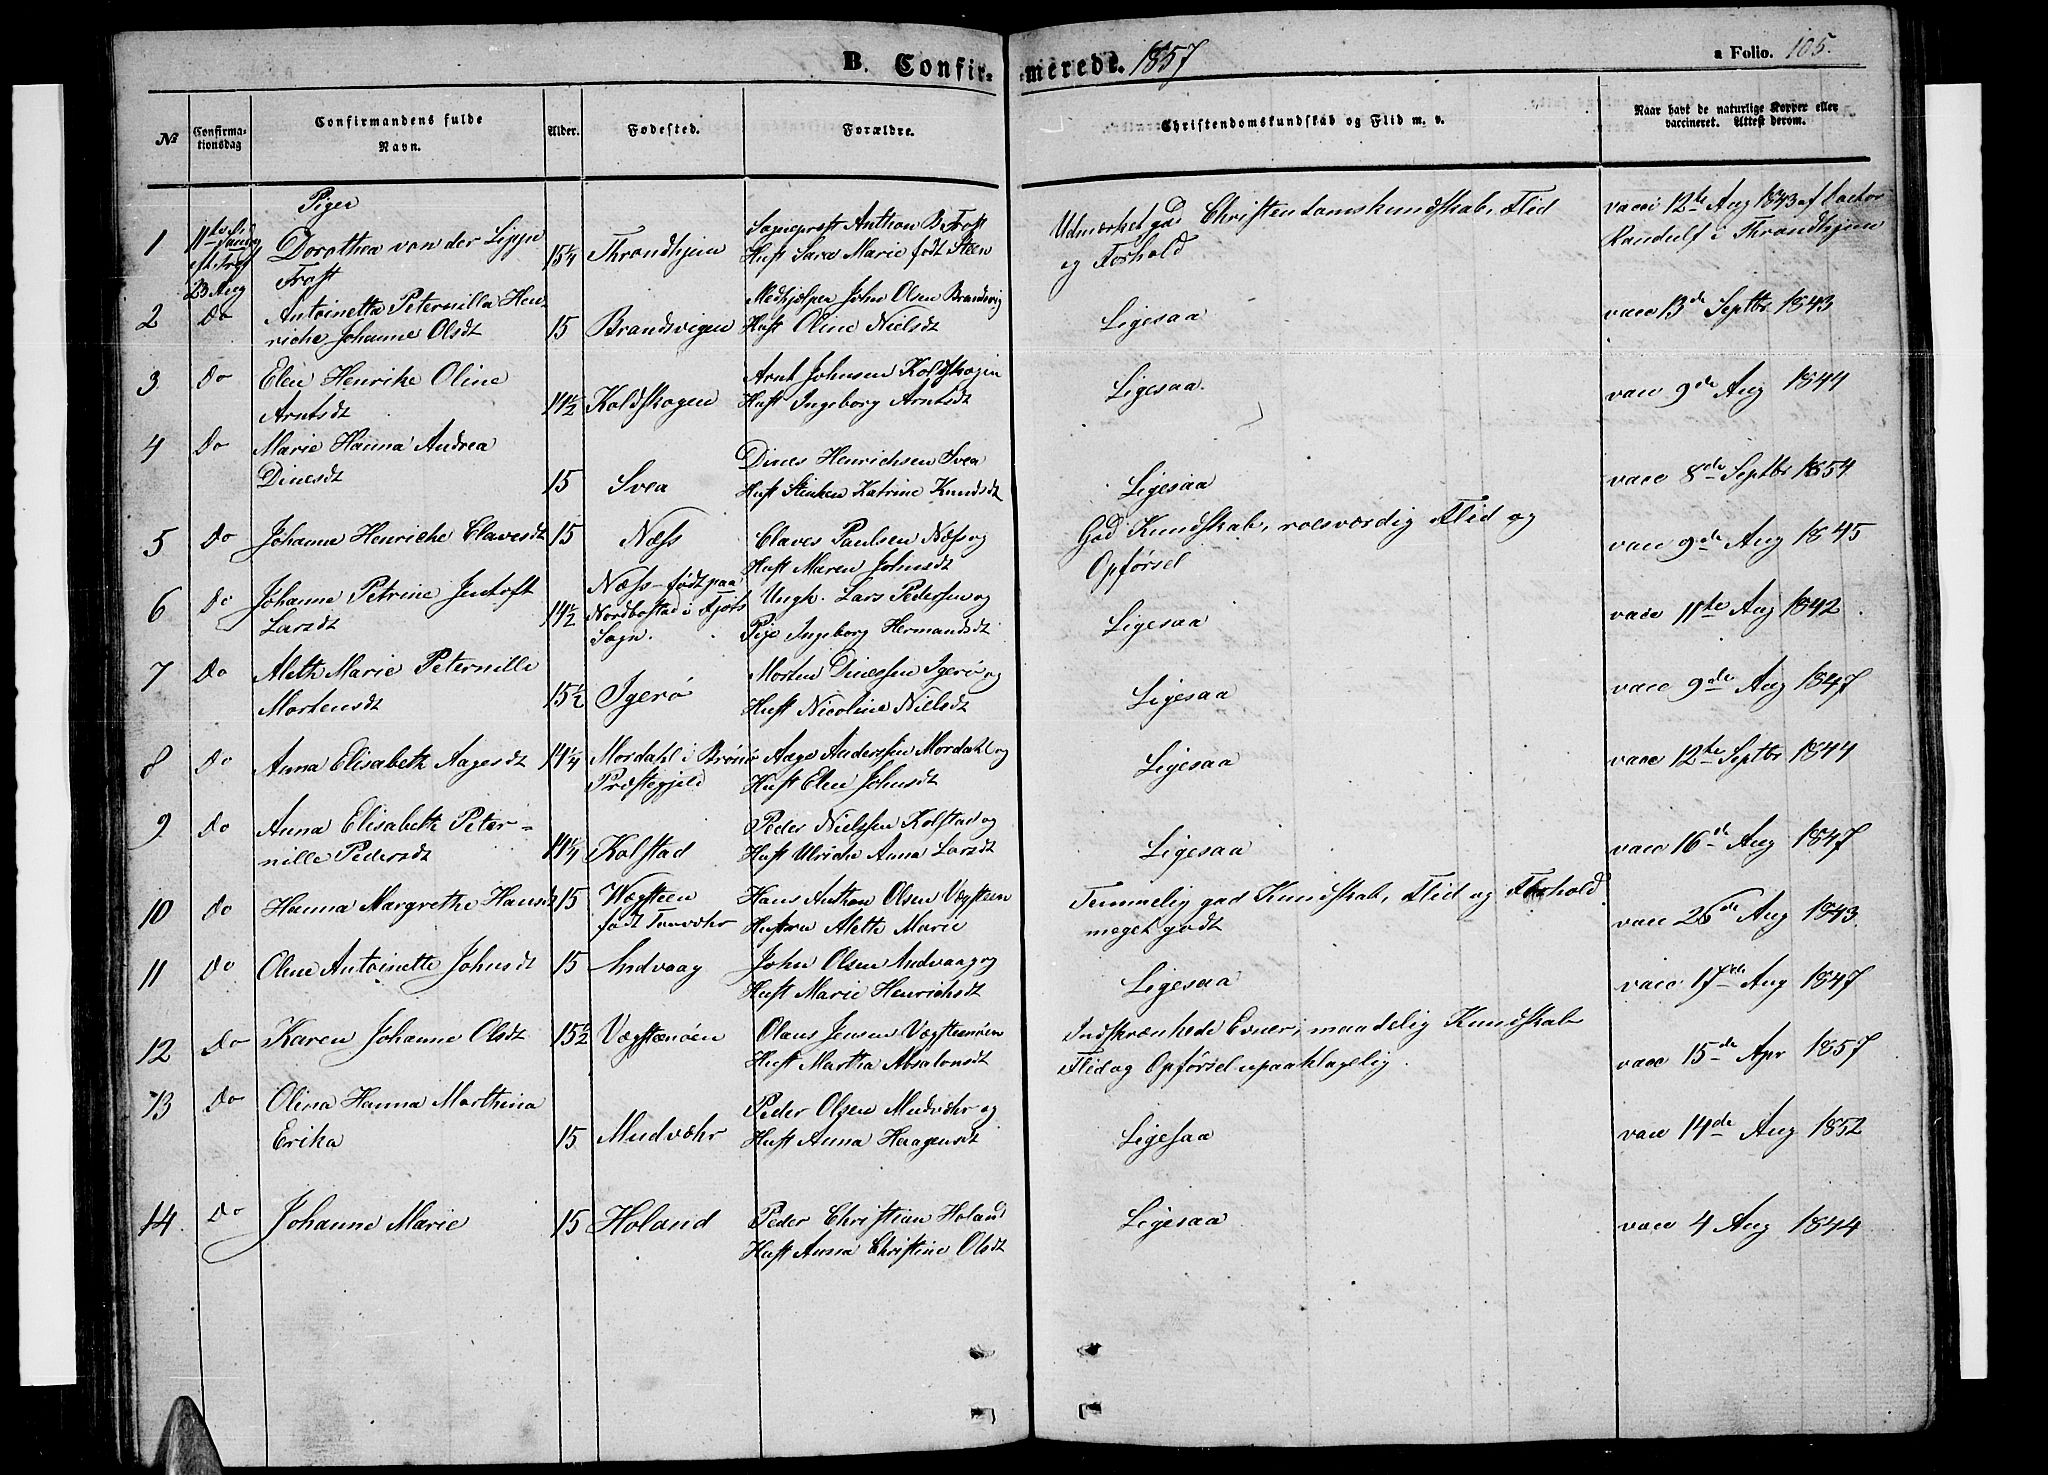 B. Confir- meredt. 1857
a Folio. 105.
№
Confirma-
tionsdag
Confirmandens fulde
Navn.
Alder.
Fodested.
Forældre.
Christendomskundskab og Flid m. v.
Naar havt de naturlige Kopper eller
vaccineret. Attest derom.
Piger
1 Dorothea von der Lippe 15¼ Throndhjem Sogneprest Anthon B Frost Udmærket god Christendomskundskab, Flid vacci 12te Aug 1843 af Doctor
23 Aug Frost Hust Sara Marie født Steen og Forhold Randulf i Throndhjem
2 Do Antoinetta Peternilla Hen Medhjelper John Olsen Brandvig
riche Johanne Olsdt 15 Brandsvigen Hust Oline Nielsdt Ligesaa vacc 13de Septbr 1843
3 Do Elen Henrike Oline Arnt Johnsen Koldskogen
Arntsdt 14½ Koldskogen Hust Ingeborg Arntsdt Ligesaa. vacc 9de Aug 1844
4 Do Marie Hanna Andrea Dines Henrichsen Svea
Dinesdt 15 Svea Hust Katrine Knudsdt Ligesaa vacc 8de Septbr 1854
5 Do Johanne Henriche Clavesdt 15 Næss Claves Paulsen Næss og God Kundskab, roesværdig Flid og vacc 9de Aug 1845
Hust Maren Johnsdt Opførsel
6 Do Johanne Petrine Jentoft 14½ Næss født paa Ungk. Lars Pedersen og
Larsdt Nordbostad i Tjøts Pige Ingeborg Hermandsdt Ligesaa vacc 11te Aug 1842
Sogn.
7 Do Aleth Marie Peternille Morten Dinessen Igerø og
Mortensdt 15½ Igerø Hust Nicoline Nielsdt Ligesaa vacc 9de Aug 1847
8 Do Anna Elisabeth Aagesdt 14¼ Mordahl i Brønø Aage Anderssen Mordahl og Ligesaa vacc 12te Septbr 1844
Præstegjeld Hust Elen Johnsdt
9 Do Anna Elisabeth Peter- Peder Nielssen Kolstad og
nille Pedersdt 14¼ Kolstad Hust Ulriche Anna Larsdt Ligesaa vacc 16de Aug 1847
10 Do Hanna Margrethe Hansdt 15 Vægsteen Hans Anthon Olsen Vægsteen Temmelig god Kundskab, Flid og Forhold vacc 26de Aug 1843.
født Hustru Aleth Marie meget godt
11 Do Olene Antoinette Johnsdt 15 Andvaag John Olsen Andvaag og
Hust Marie Henrichsdt Ligesaa vacc 17de Aug 1847
12 Do Karen Johanne Olsdt 15½ Vægstenøen Olaus Jensen Vægsteenøen Indskrænkede Evner, maadelig Kundskab
Hust Martha Absalonsdt Flid og Opførsel upaaklagelig. vacc 15de Apr 1857
13 Do Olina Hanna Marthina Peder Olsen Mudvæhr og
Erika 15 Mudvæhr Hust Anna Haagensdt Ligesaa vacc 14de Aug 1852
14 Do Johanne Marie 15 Holand Peder Christian Holand Ligesaa vacc 4 Aug 1844
Hust Anna Christine Olsdt